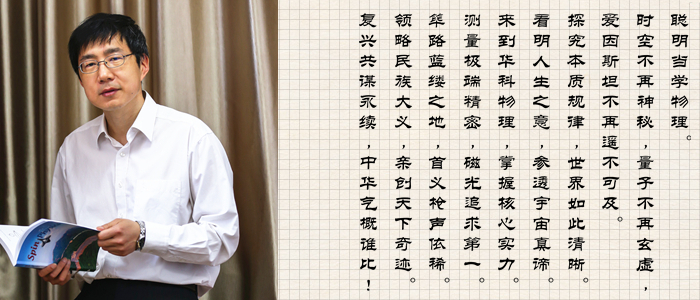 聪明当学物理。
时空不再神秘，量子不再玄虚，
爱因斯坦不再遥不可及。
探究本质规律，世界如此清晰。
看明人生之意，参透宇宙真谛。
来到华科物理，掌握核心实力。
测量极端精密，磁光追求第一。
筚路蓝缕之地，首义枪声依稀。
领略民族大义，亲创天下奇迹。
复兴共谋永续，中华气概谁比！
Spin